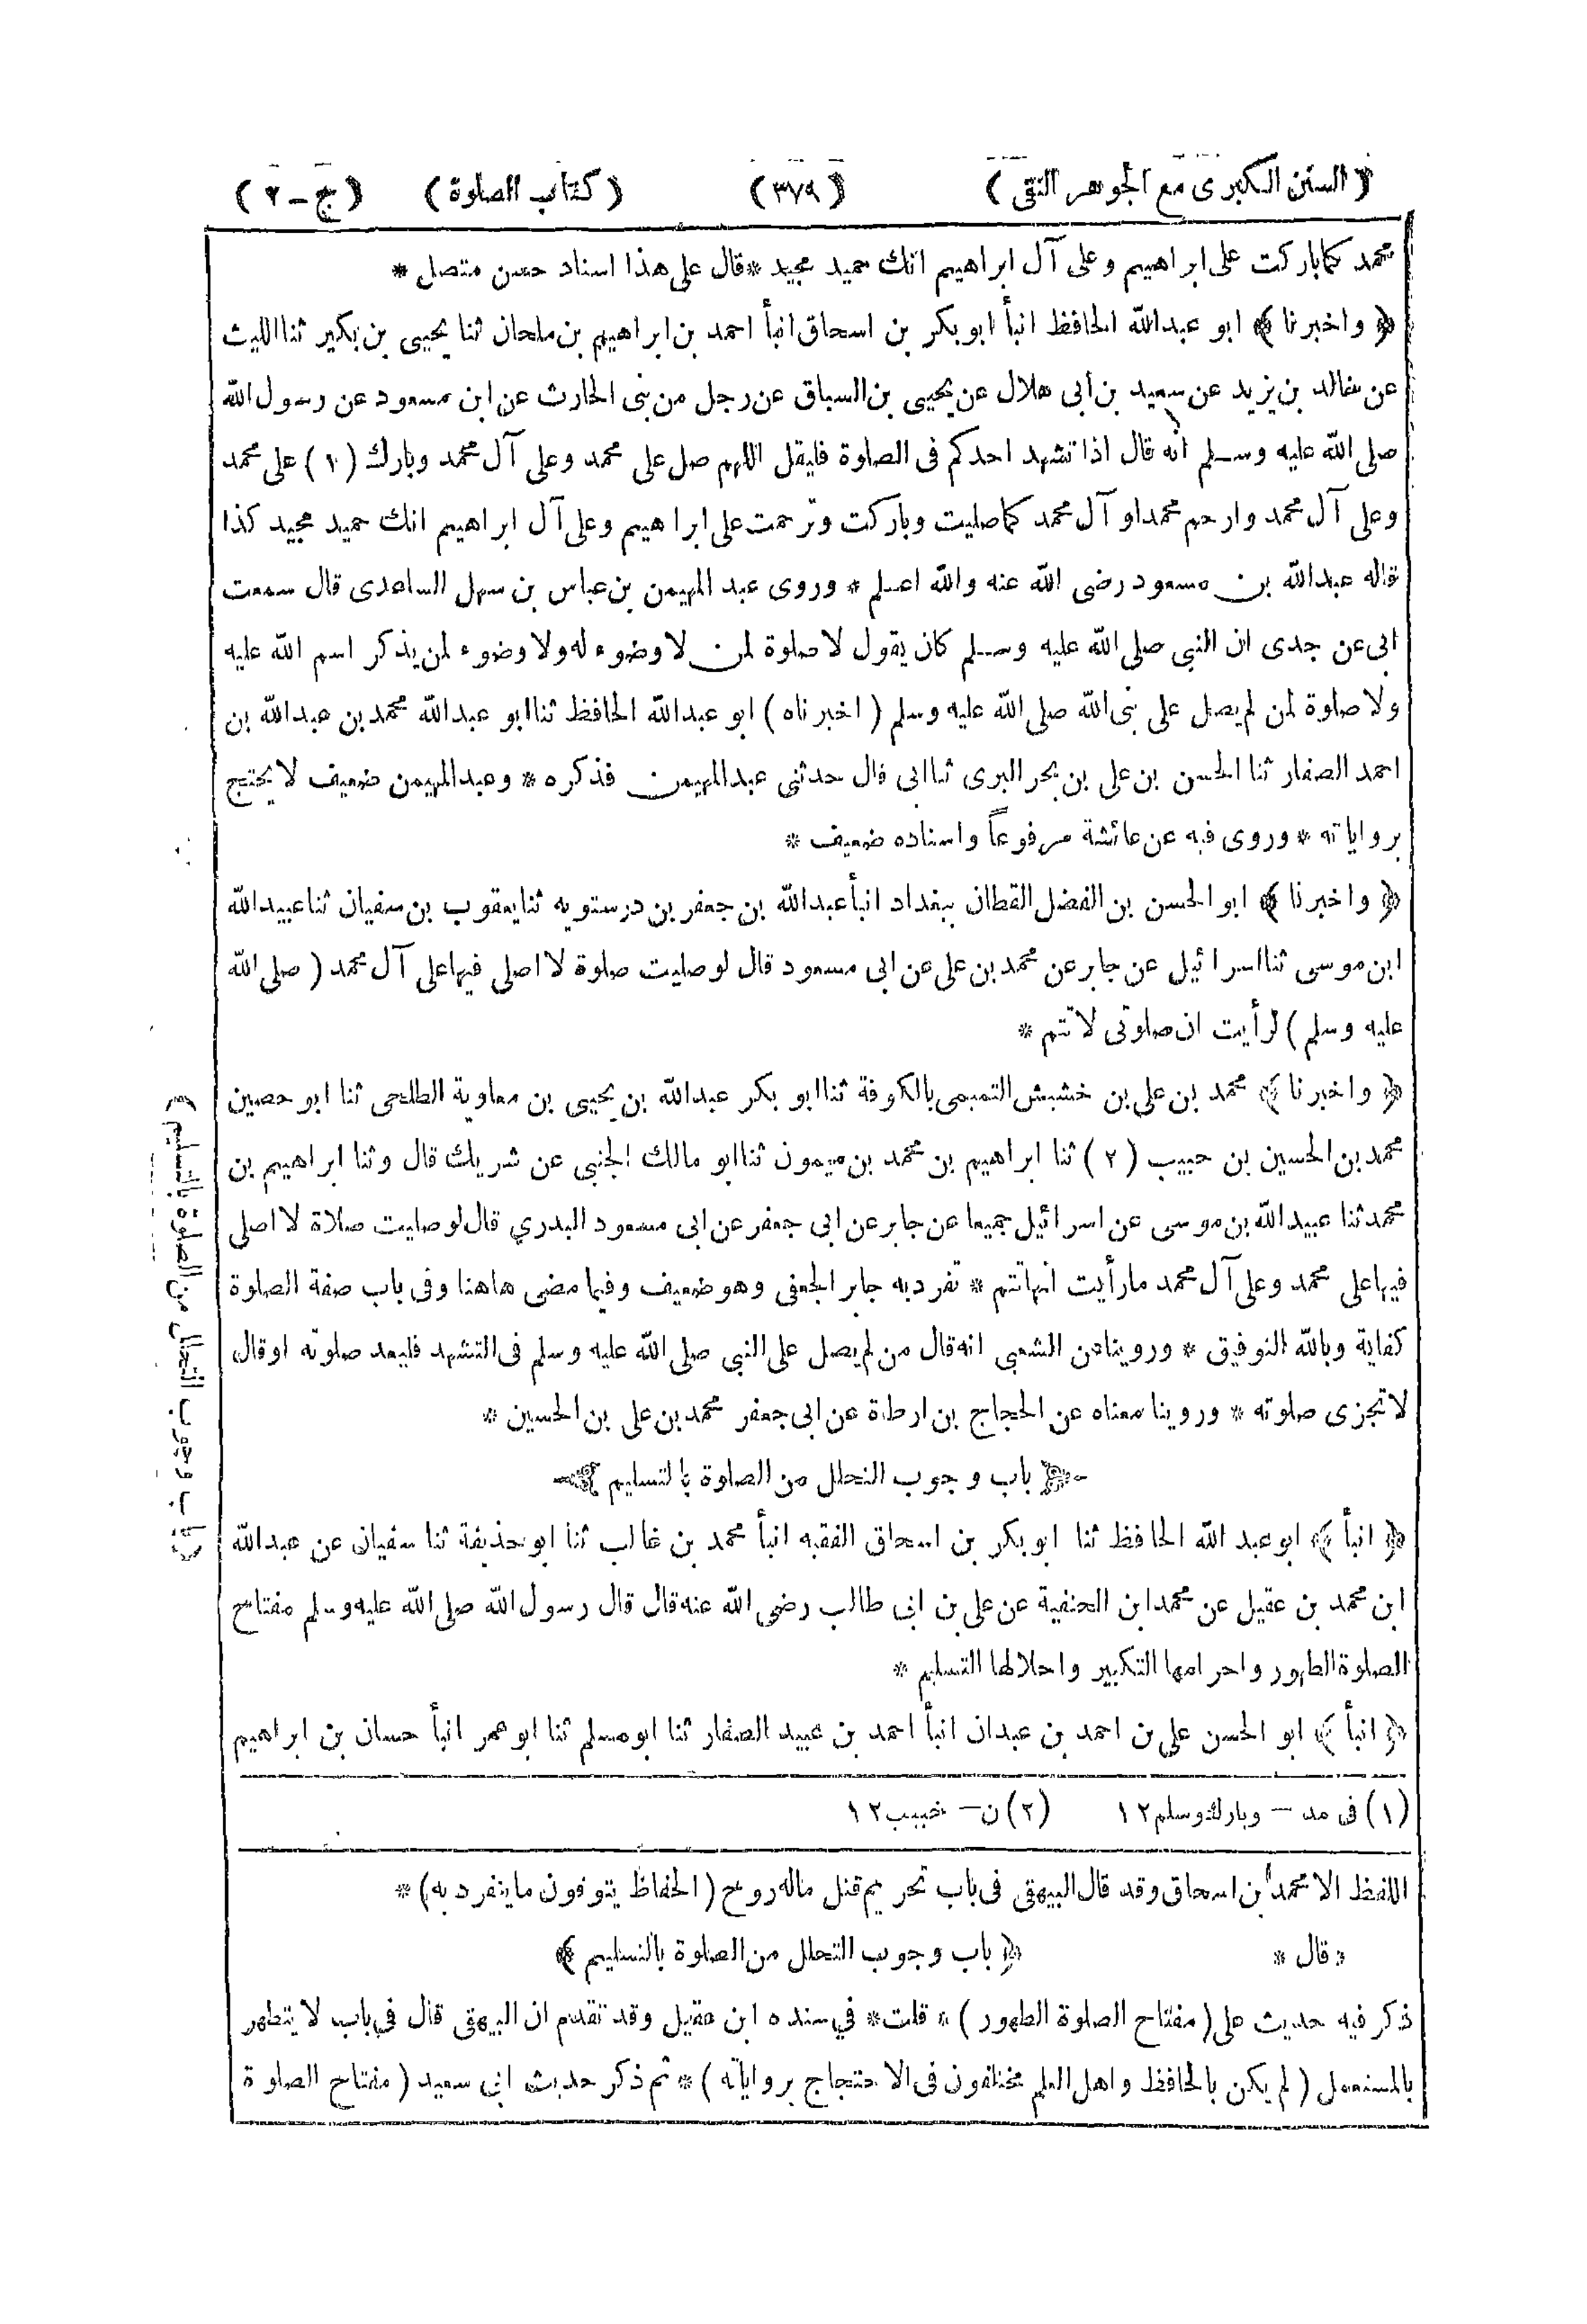 (السنن الكبرى مع الجوهر النقى) (٣٧٩) (كتاب الصلوة) (ج-٢)
محمد كما باركت على ابراهيم وعلى آل ابراهيم انك حميد مجيد * قال على هذا اسناد حسن متصل *
﴿ واخبرنا ﴾ ابو عبدالله الحافظ انبأ ابوبكر بن اسحاق انبأ احمد بن ابراهيم بن ملحان ثنا يحيى بن بكير ثنا الليث
عن خالد بن يزيد عن سعيد بن أبى هلال عن يحيى بن السباق عن رجل من بنى الحارث عن ابن مسعود عن رسول الله
صلى الله عليه وسلم انه قال اذا تشهد احدكم فى الصلوة فليقل اللهم صل على محمد وعلى آل محمد وبارك (١) على محمد
وعلى آل محمد وارحم محمدا و آل محمد كما صليت وباركت وترحمت على ابراهيم وعلى آل ابراهيم انك حميد مجيد كذا
قاله عبدالله بن مسعود رضى الله عنه والله اعلم * وروى عبد المهيمن بن عباس بن سهل الساعدى قال سمعت
ابى عن جدى ان النبى صلى الله عليه وسلم كان يقول لا صلوة لمن لا وضوء له ولا وضوء لمن يذكر اسم الله عليه
ولا صلوة لمن لم يصل على نبى الله صلى الله عليه وسلم (اخبرناه) ابو عبدالله الحافظ ثنا ابو عبدالله محمد بن عبدالله بن
احمد الصفار ثنا الحسن بن على بن بحر البرى ثنا ابى قال حدثنى عبدالمهيمن فذكره * وعبدالمهيمن ضعيف لا يحتج
برواياته * وروى فيه عن عائشة مرفوعاً واسناده ضعيف *
﴿ واخبرنا ﴾ ابو الحسن بن الفضل القطان ببغداد انبأ عبدالله بن جعفر بن درستويه ثنا يعقوب بن سفيان ثنا عبيدالله
ابن موسى ثنا اسرائيل عن جابر عن محمد بن على عن ابى مسعود قال لو صليت صلوة لا اصلى فيها على آل محمد (صلى الله
عليه وسلم) لرأيت ان صلوتى لا تتم *
﴿ واخبرنا ﴾ محمد بن على بن خشيش التميمى بالكوفة ثنا ابو بكر عبدالله بن يحيى بن معاوية الطلحى ثنا ابو حصين
محمد بن الحسين بن حبيب (٢) ثنا ابراهيم بن محمد بن ميمون ثنا ابو مالك الجنبى عن شريك قال وثنا ابراهيم بن
محمد ثنا عبيد الله بن موسى عن اسرائيل جميعا عن جابر عن ابى جعفر عن ابى مسعود البدري قال لو صليت صلاة لا اصلى
فيها على محمد وعلى آل محمد ما رأيت انها تتم * تفرد به جابر الجعفى وهو ضعيف وفيما مضى هاهنا وفى باب صفة الصلوة
كفاية وبالله التوفيق * وروينا عن الشعبى انه قال من لم يصل على النبى صلى الله عليه وسلم فى التشهد فليعد صلوته او قال
لا تجزى صلوته * وروينا معناه عن الحجاج بن ارطاة عن ابى جعفر محمد بن على بن الحسين *
باب وجوب التحلل من الصلوة بالتسليم
﴿ انبأ ﴾ ابو عبد الله الحافظ ثنا ابوبكر بن اسحاق الفقيه انبأ محمد بن غالب ثنا ابو حذيفة ثنا سفيان عن عبدالله
ابن محمد بن عقيل عن محمد ابن الحنفية عن على بن ابى طالب رضى الله عنه قال قال رسول الله صلى الله عليه وسلم مفتاح
الصلوة الطهور واحرامها التكبير واحلالها التسليم *
﴿ انبأ ﴾ ابو الحسن على بن احمد بن عبدان انبأ احمد بن عبيد الصفار ثنا ابو مسلم ثنا ابو عمر انبأ حسان بن ابراهيم
(١) فى مد – وبارك وسلم ١٢ (٢) ن – خبيب ١٢
اللفظ الا محمد بن اسحاق وقد قال البيهقى فى باب تحريم قتل ماله روح (الحفاظ يتوقون ما ينفرد به) *
* قال * ﴿ باب وجوب التحلل من الصلوة بالتسليم ﴾
ذكر فيه حديث على (مفتاح الصلوة الطهور) * قلت * في سنده ابن عقيل وقد تقدم ان البيهقى قال فى باب لا يتطهر
بالمستعمل (لم يكن بالحافظ واهل العلم مختلفون فى الاحتجاج برواياته) * ثم ذكر حديث ابى سعيد (مفتاح الصلوة
باب وجوب التحلل من الصلوة بالتسليم